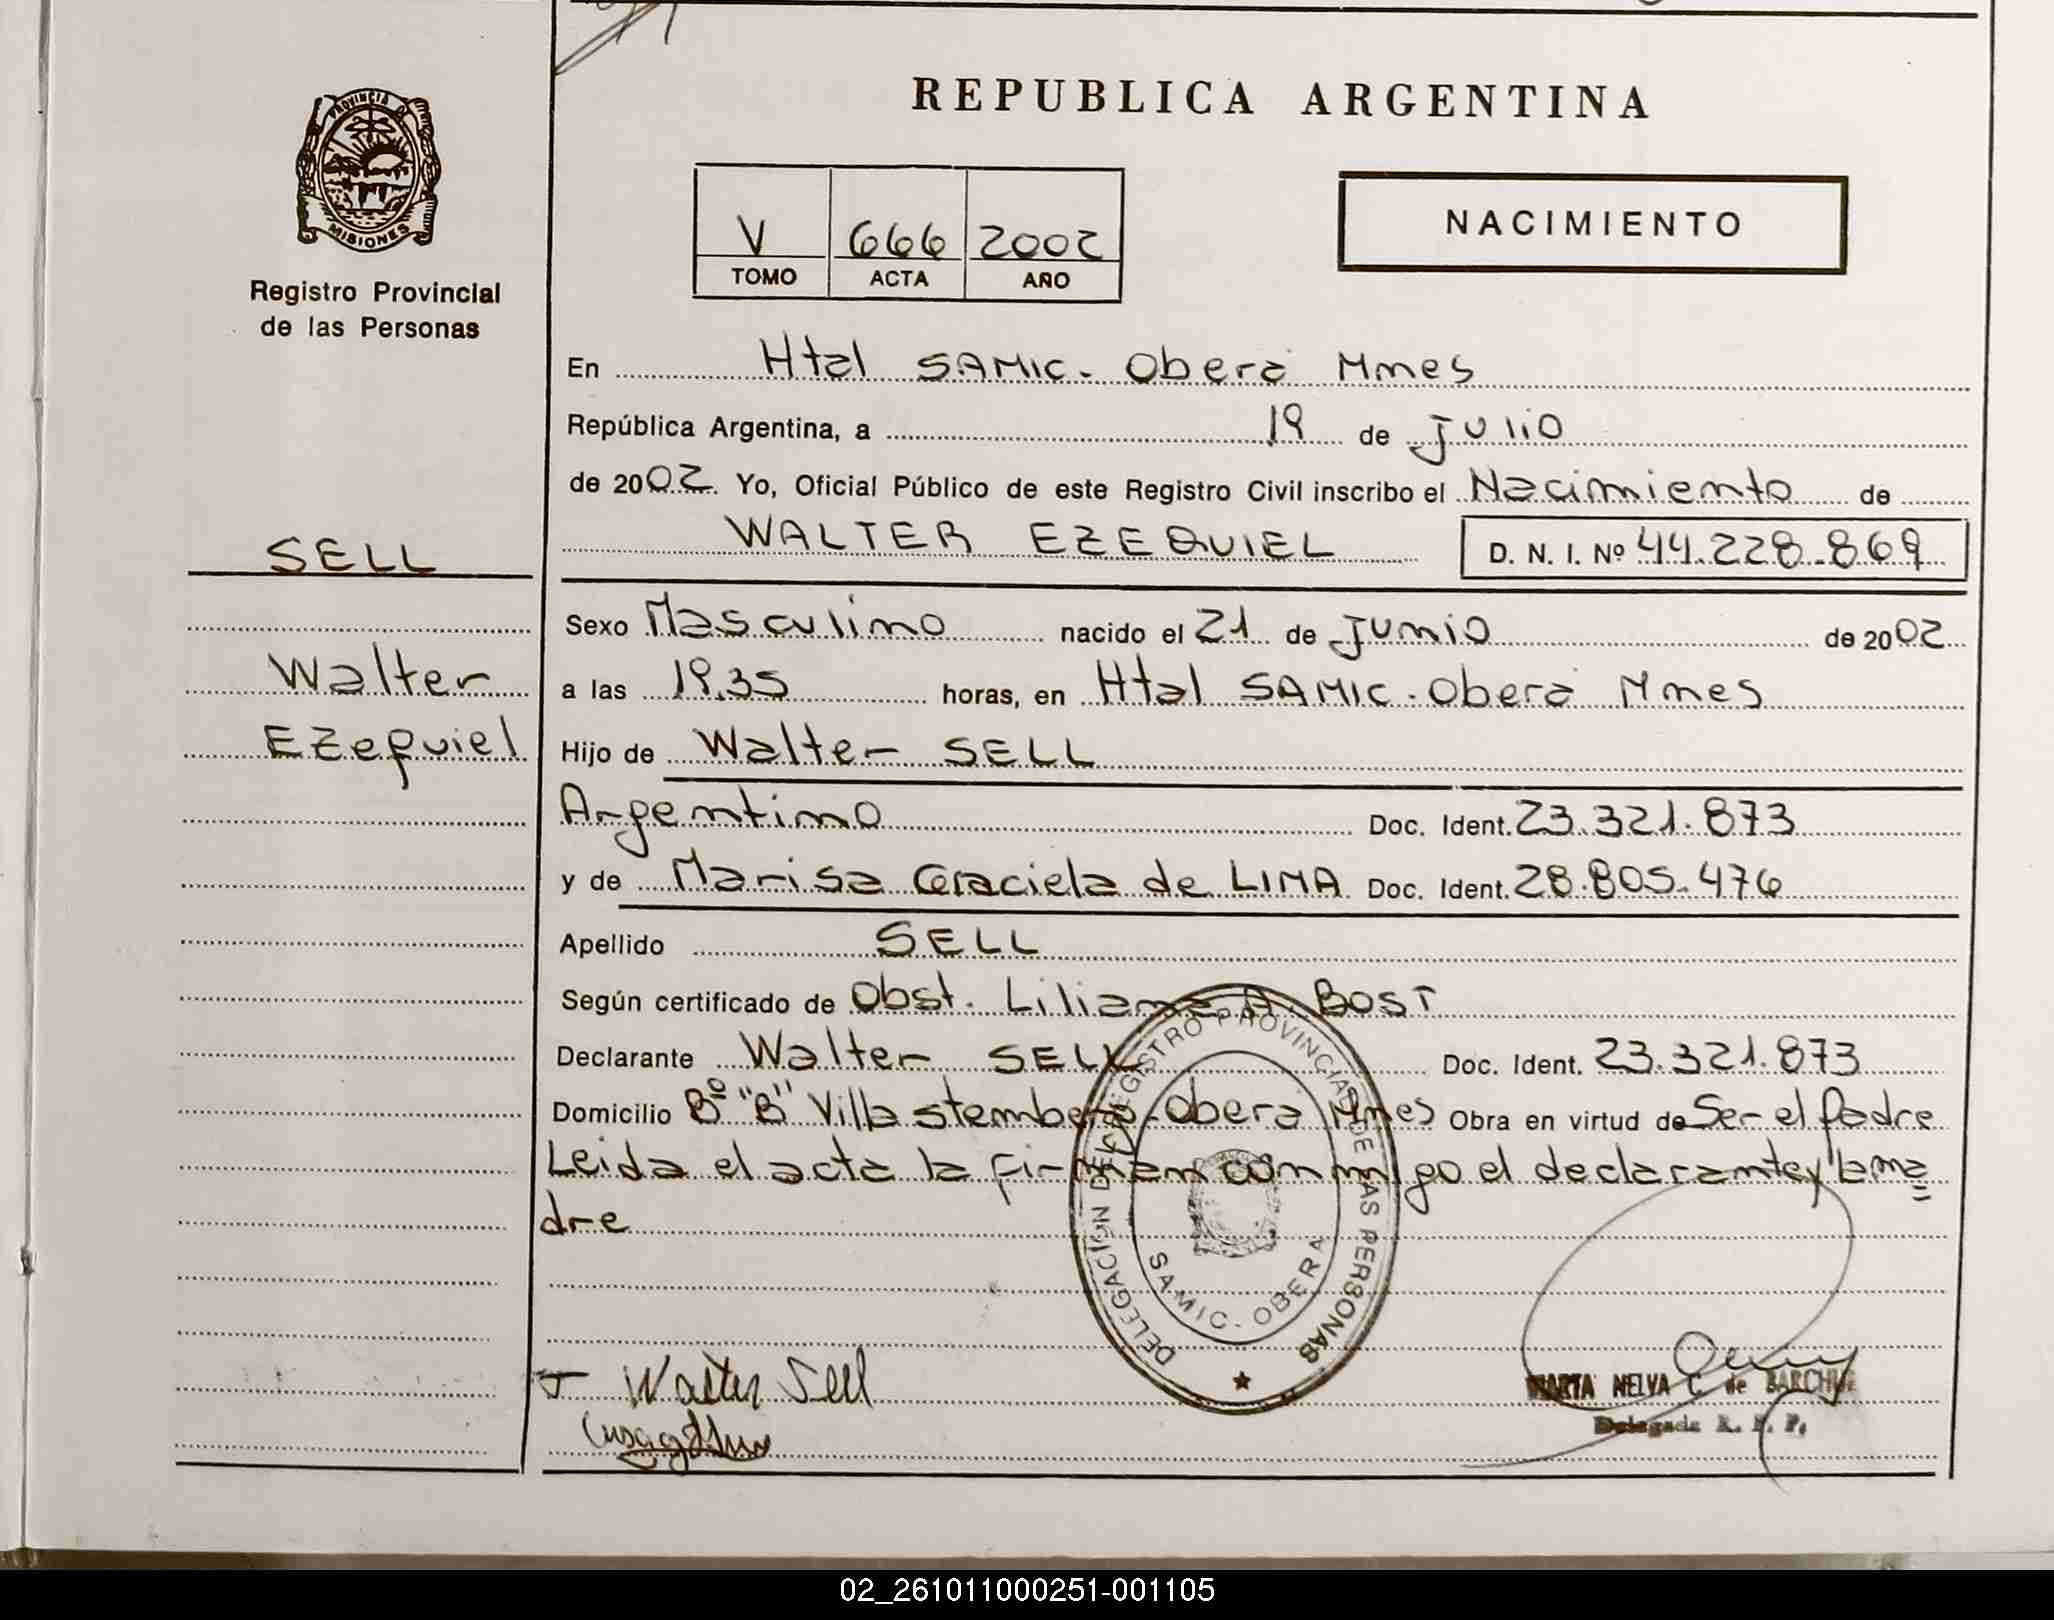 REPUBLICA ARGENTINA
PROVINCIA DE
MISIONES
Registro Provincial
de las Personas
NACIMIENTO
V 666 2002
TOMO ACTA AÑO
En Htal SAMIC. Oberá Mnes
República Argentina, a 19 de Julio
de 2002. Yo, Oficial Público de este Registro Civil inscribo el Nacimiento de
SELL
WALTER EZEQUIEL D. N. I. Nº 44.228.869
Sexo Masculino nacido el 21 de Junio de 2002
Walter
a las 19.35 horas, en Htal SAMIC. Oberá Mnes
Ezequiel
Hijo de Walter SELL
Argentino Doc. Ident. 23.321.873
y de Marisa Graciela de LIMA Doc. Ident. 28.805.476
Apellido SELL
Según certificado de Obst. Liliana A. BOST
Declarante Walter SELL Doc. Ident. 23.321.873
Domicilio Bº "B" Villa Stemberg-Obera Mnes Obra en virtud de Ser el Padre
Leida el acta la firman conmigo el declarante y la ma=
dre
DELEGACIÓN DEL REGISTRO PROVINCIAL DE LAS PERSONAS
SAMIC. OBERA
Walter Sell
MARTA NELVA C. de
Delegada R. P. P.
02_261011000251-001105